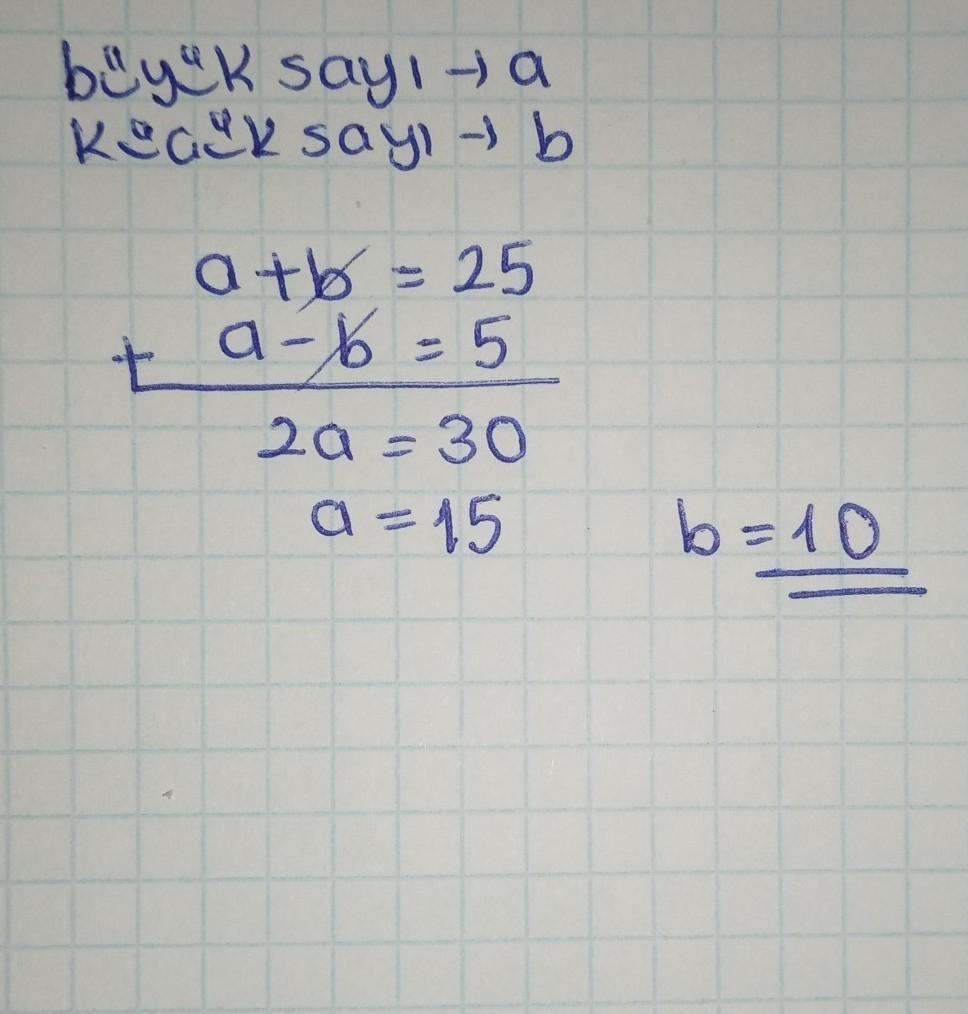 büyük sayı → a
küçük sayı → b
a + b = 25
+ a - b = 5
2a = 30
a = 15 b = 10